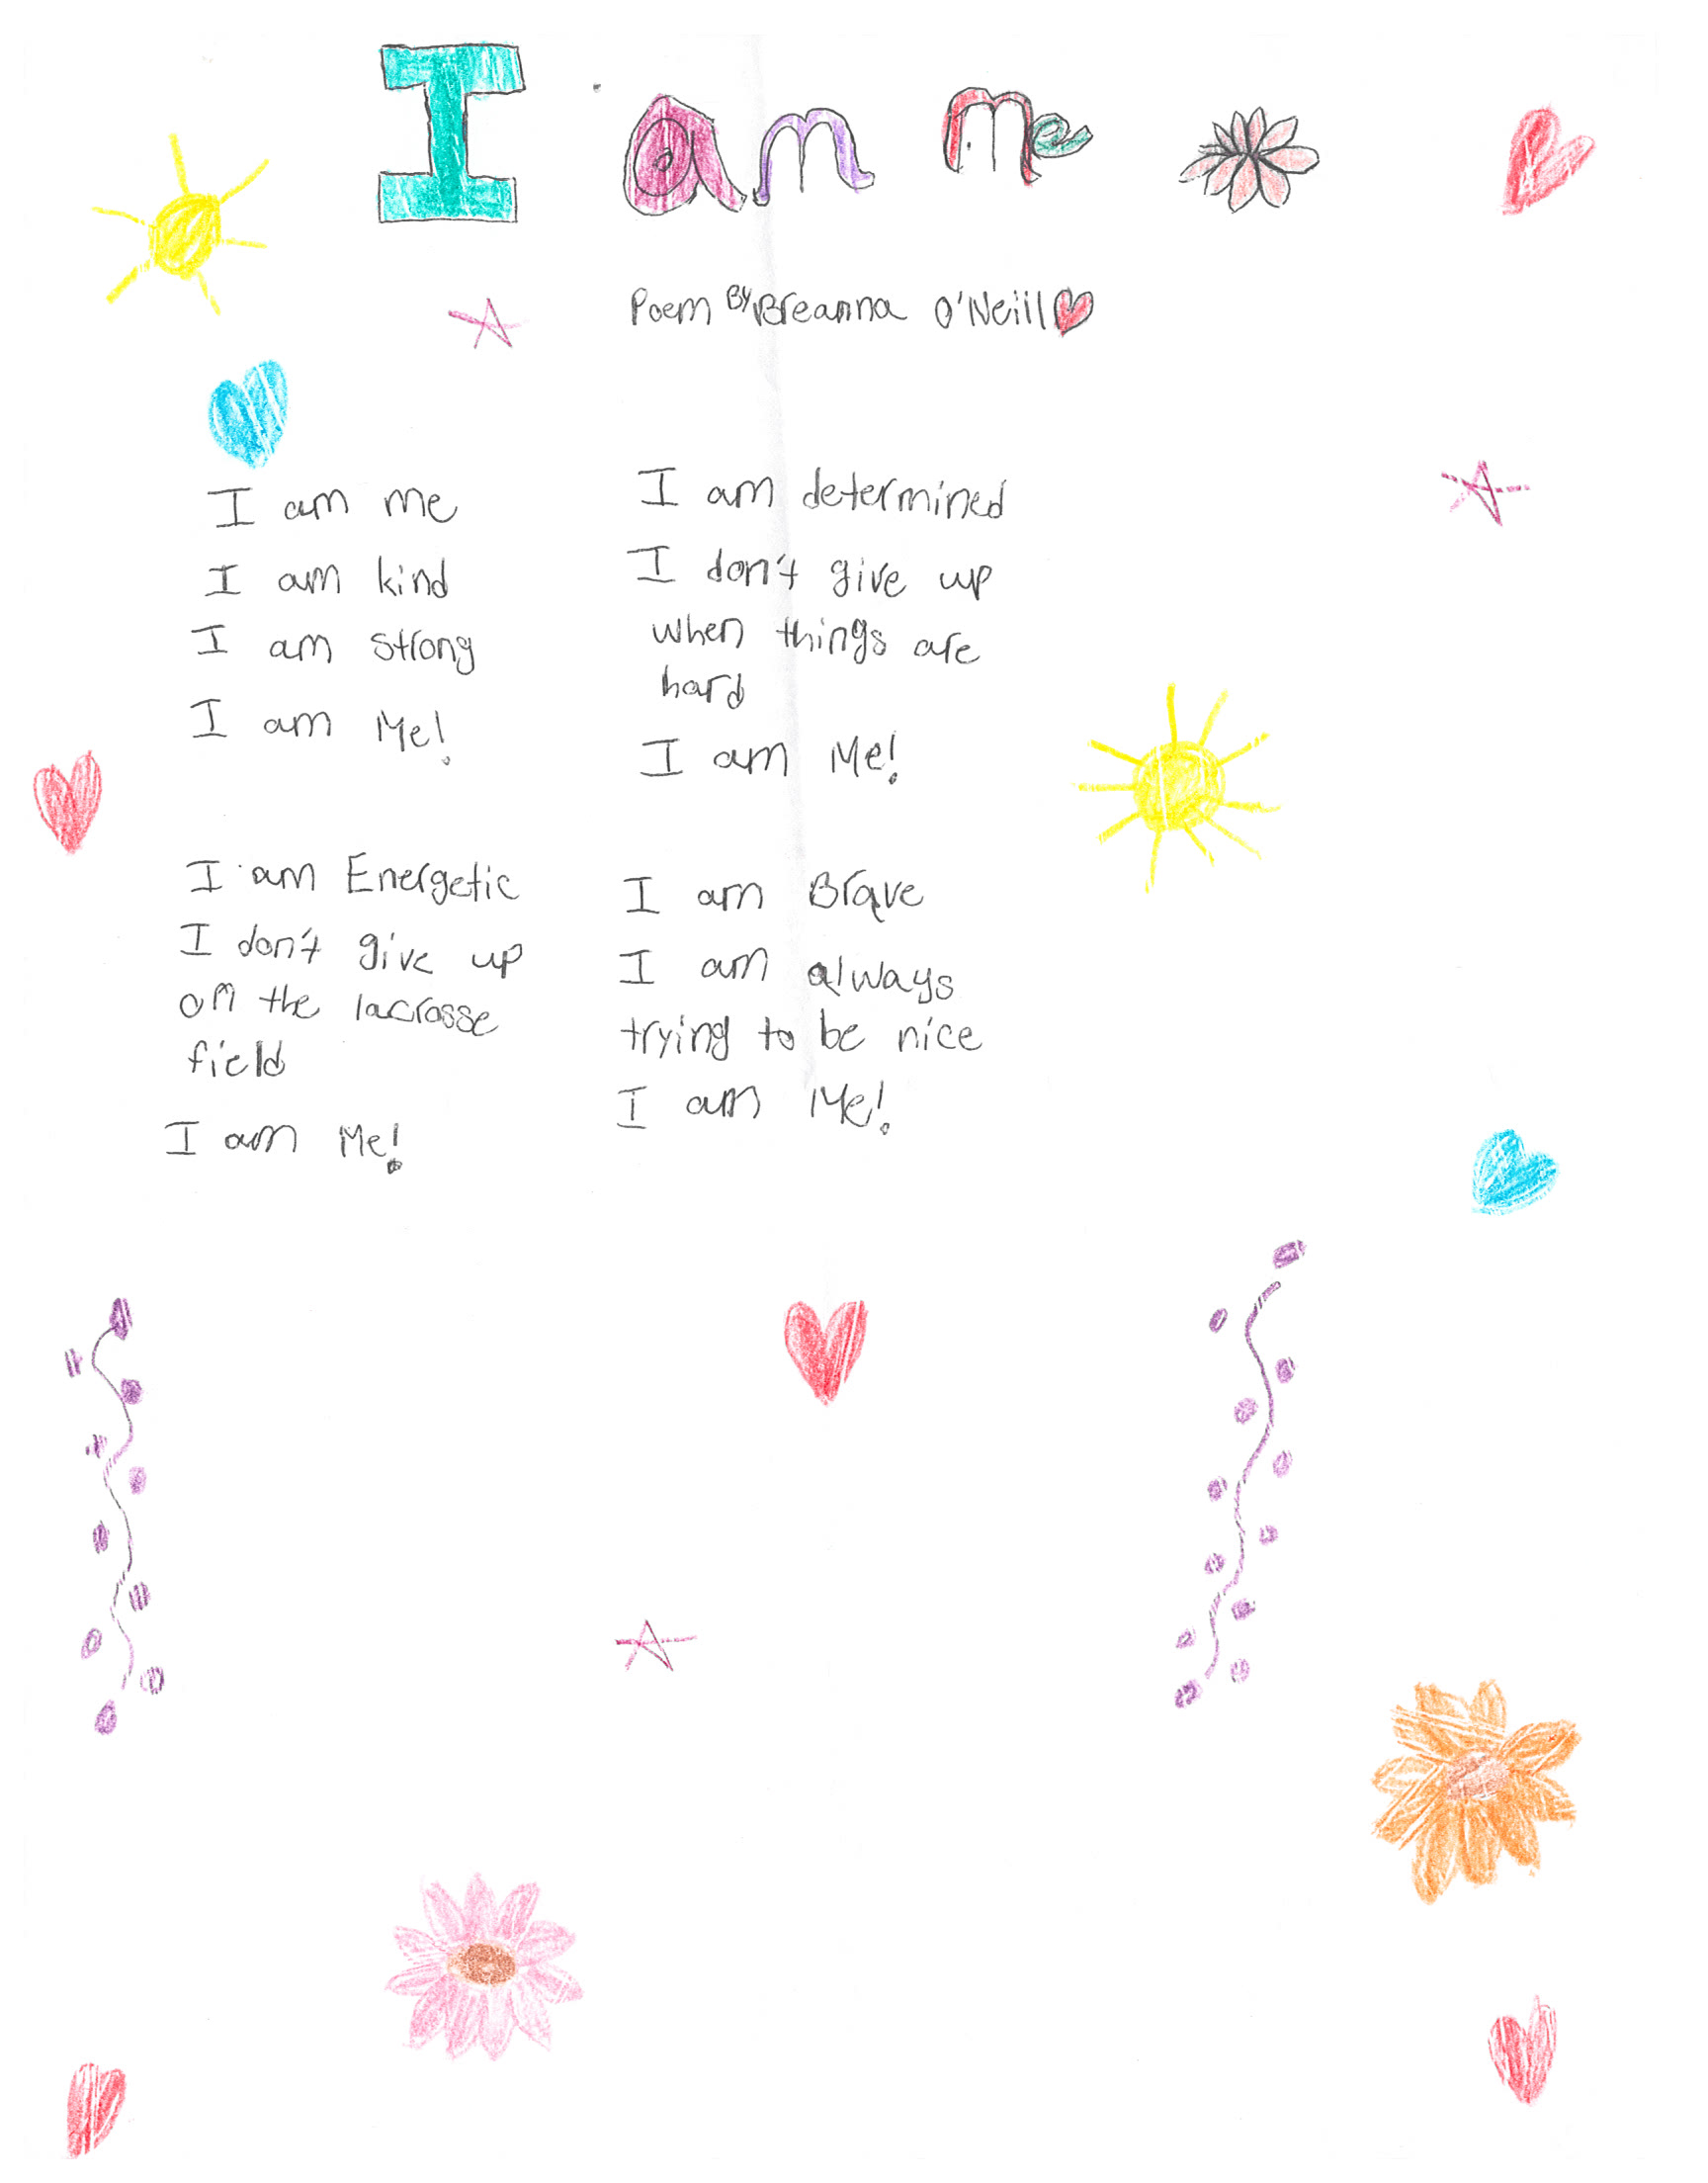 I am me
Poem By Breanna O'Neill
I am me
I am kind
I am strong
I am Me!
I am Energetic
I don't give up
on the lacrosse
field
I am Me!
I am determined
I don't give up
when things are
hard
I am Me!
I am Brave
I am always
trying to be nice
I am Me!